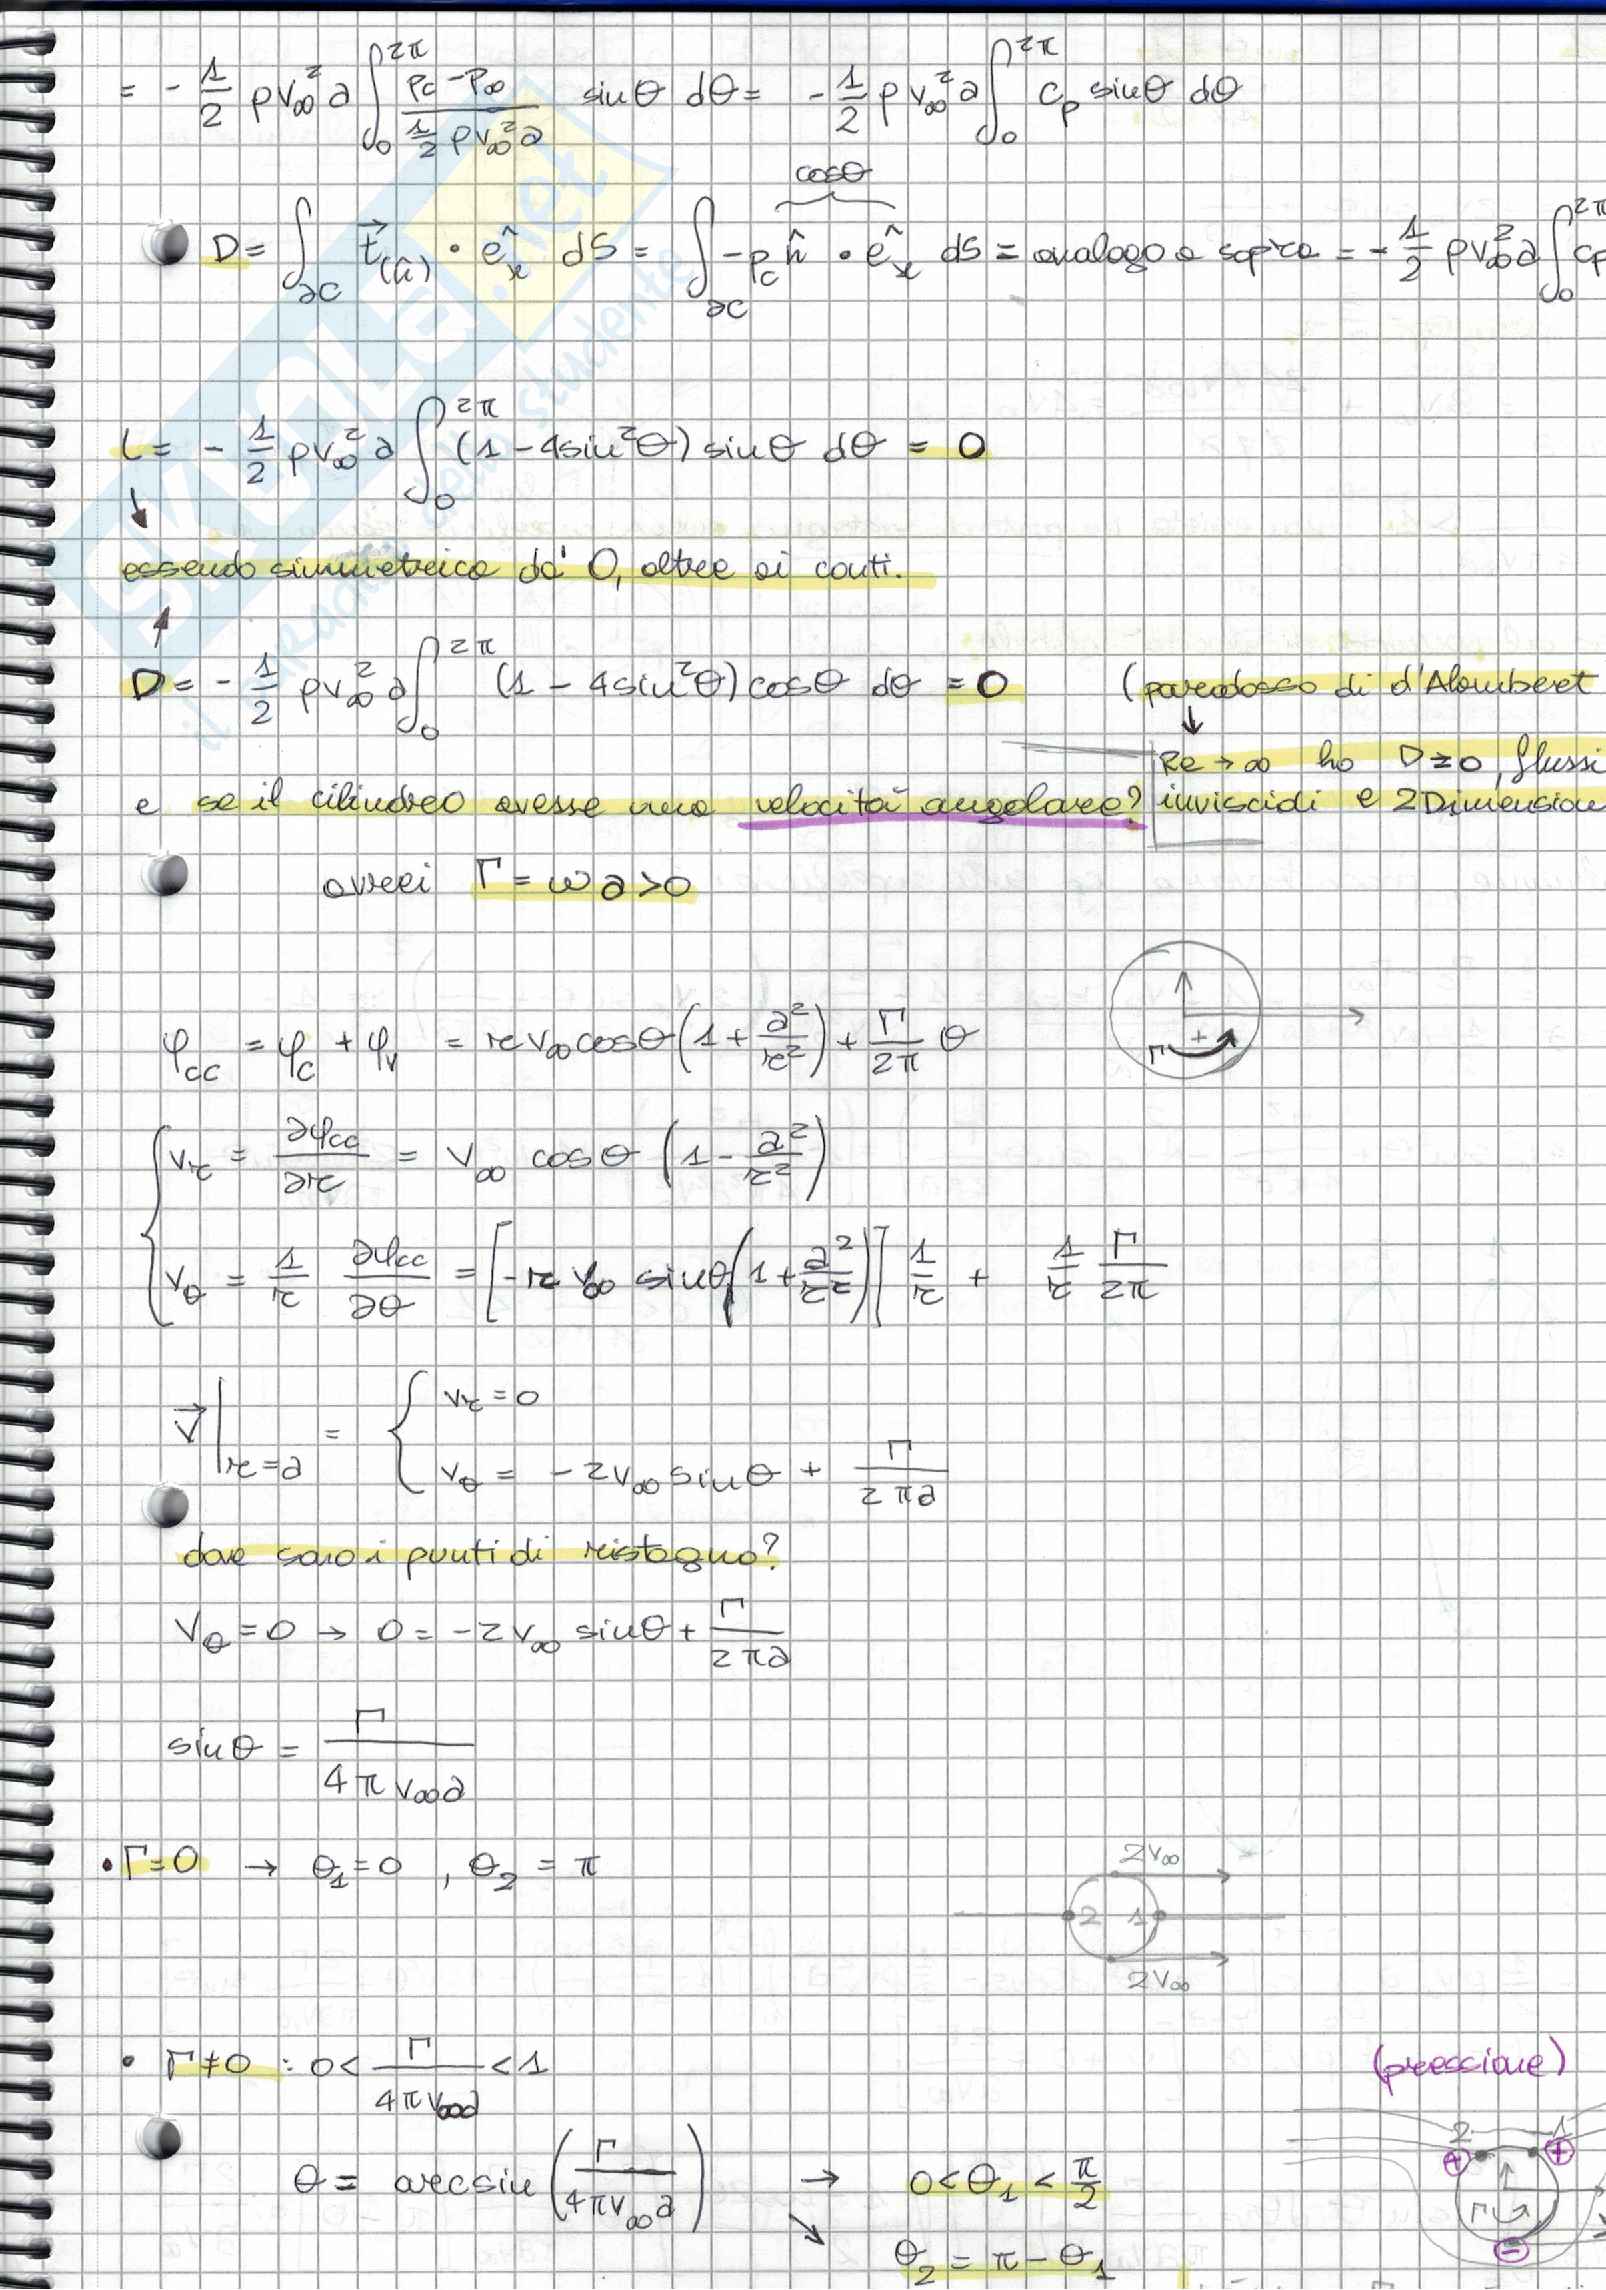 = - 1/2 ρv∞² a ∫₀^2π (p_c - p∞)/(1/2 ρv∞² a) sinθ dθ = - 1/2 ρ v∞² a ∫₀^2π c_p sinθ dθ
cosθ
D = ∫_∂C t⃗(n̂) · ê_x dS = ∫_∂C -p_c n̂ · ê_x dS = analogo a sopra = - 1/2 ρv∞² a ∫₀^2π c_p
L = - 1/2 ρv∞² a ∫₀^2π (1 - 4sin²θ) sinθ dθ = 0
↓
essendo simmetrico dà 0, oltre ai conti.
↗
D = - 1/2 ρv∞² a ∫₀^2π (1 - 4sin²θ) cosθ dθ = 0 (paradosso di d'Alambert
↓
Re → ∞ ho D = 0, flussi
e se il cilindro avesse una velocità angolare? inviscidi e 2Dimension
avrei Γ = ω a > 0
Γ +
φ_cc = φ_c + φ_v = r v∞ cosθ (1 + a²/r²) + Γ/2π θ
{ v_r = ∂φcc/∂r = v∞ cosθ (1 - a²/r²)
v_θ = 1/r ∂φcc/∂θ = [-r v∞ sinθ (1 + a²/r²)] 1/r + 1/r Γ/2π
v⃗|_r=a = { v_r = 0
v_θ = -2v∞ sinθ + Γ/2πa
dove sono i punti di ristagno?
v_θ = 0 → 0 = -2v∞ sinθ + Γ/2πa
sinθ = Γ/4πv∞a
• Γ=0 → θ₁ = 0 , θ₂ = π
2v∞
2 1
2v∞
• Γ≠0 : 0 < Γ/4πv∞a < 1
(pressione)
2 1
+ +
θ = arcsin (Γ/4πv∞a) → 0 < θ₁ < π/2
Γ
↘ θ₂ = π - θ₁
-
SKUOLA.net
il paradiso dello studente